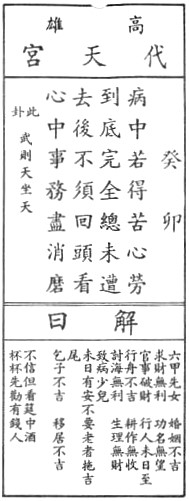 高雄
代天宮
癸卯
病中若得苦心勞
到底完全總未遭
去後不須回頭看
心中事務盡消磨
此卦 武則天坐天
解曰
六甲先女 婚姻不吉
求財無利 功名無望
官事破財 行人未日至
行舟不吉 耕作無收
討海無利 生理無財
致病少兒
未日有安不要老者拖吉
尾
乞子不吉 移居不吉
不信但看筵中酒
杯杯先勸有錢人